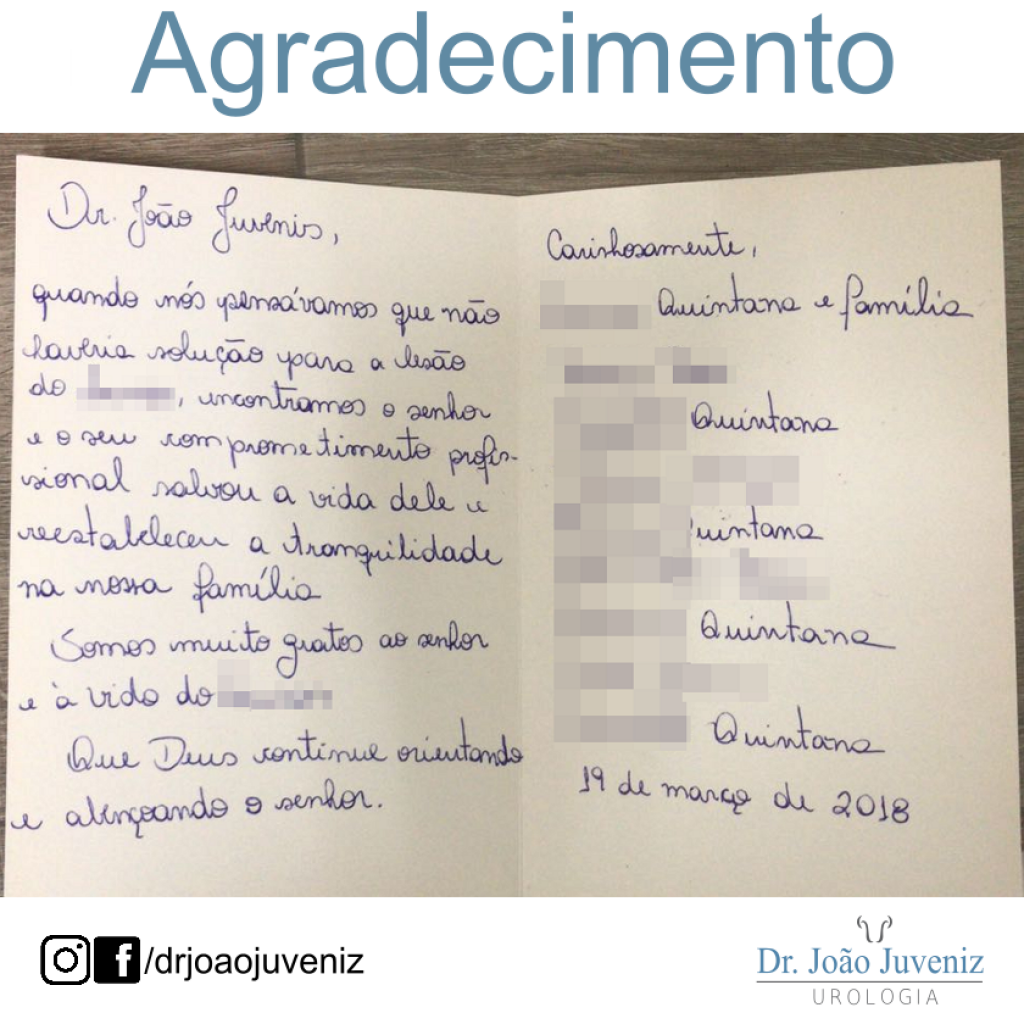 Agradecimento
Dr. João Juvenis,
quando nós pensávamos que não
haveria solução para a lesão
do , encontramos o senhor
e o seu comprometimento profis-
sional salvou a vida dele e
reestabeleceu a tranquilidade
na nossa família
Somos muito gratos ao senhor
e à vida do
Que Deus continue orientando
e abençoando o senhor.
Carinhosamente,
Quintana e família
Quintana
uintana
Quintana
Quintana
19 de março de 2018
/drjoaojuveniz
Dr. João Juveniz
UROLOGIA